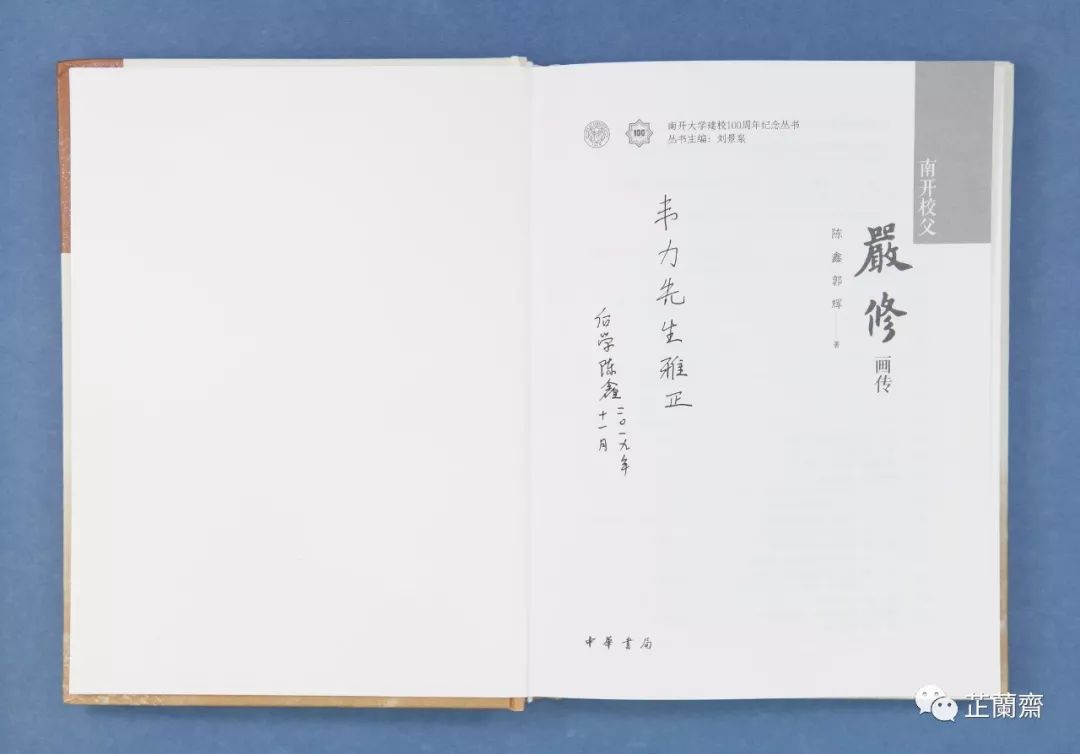 100
南开大学建校100周年纪念丛书
丛书主编：刘景泉
南开校父
嚴修
画传
陈鑫 郭辉——著
韦力先生雅正
后学陈鑫
二〇一九年
十一月
中華書局
芷蘭齋